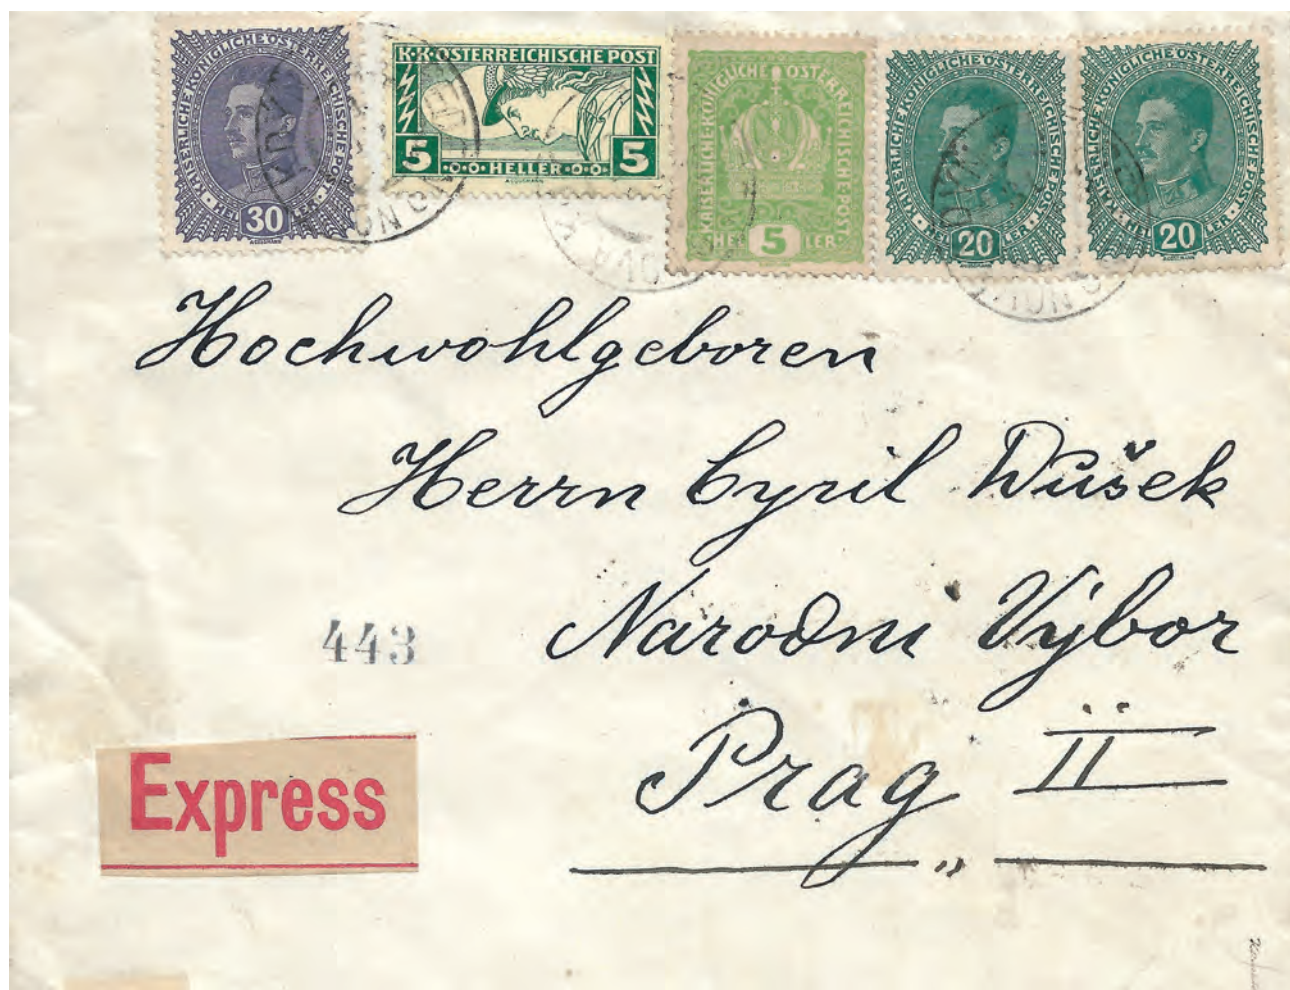 KAISERLICHE KÖNIGLICHE ÖSTERREICHISCHE POST
HELLER
30
K.K. ÖSTERREICHISCHE POST
5 HELLER 5
KAISERLICHE KÖNIGLICHE ÖSTERREICHISCHE POST
HELLER
5
KAISERLICHE KÖNIGLICHE ÖSTERREICHISCHE POST
HELLER
20
KAISERLICHE KÖNIGLICHE ÖSTERREICHISCHE POST
HELLER
20
Hochwohlgeboren
Herrn Cyril Dušek
Narodni Výbor
443
Prag II
Express